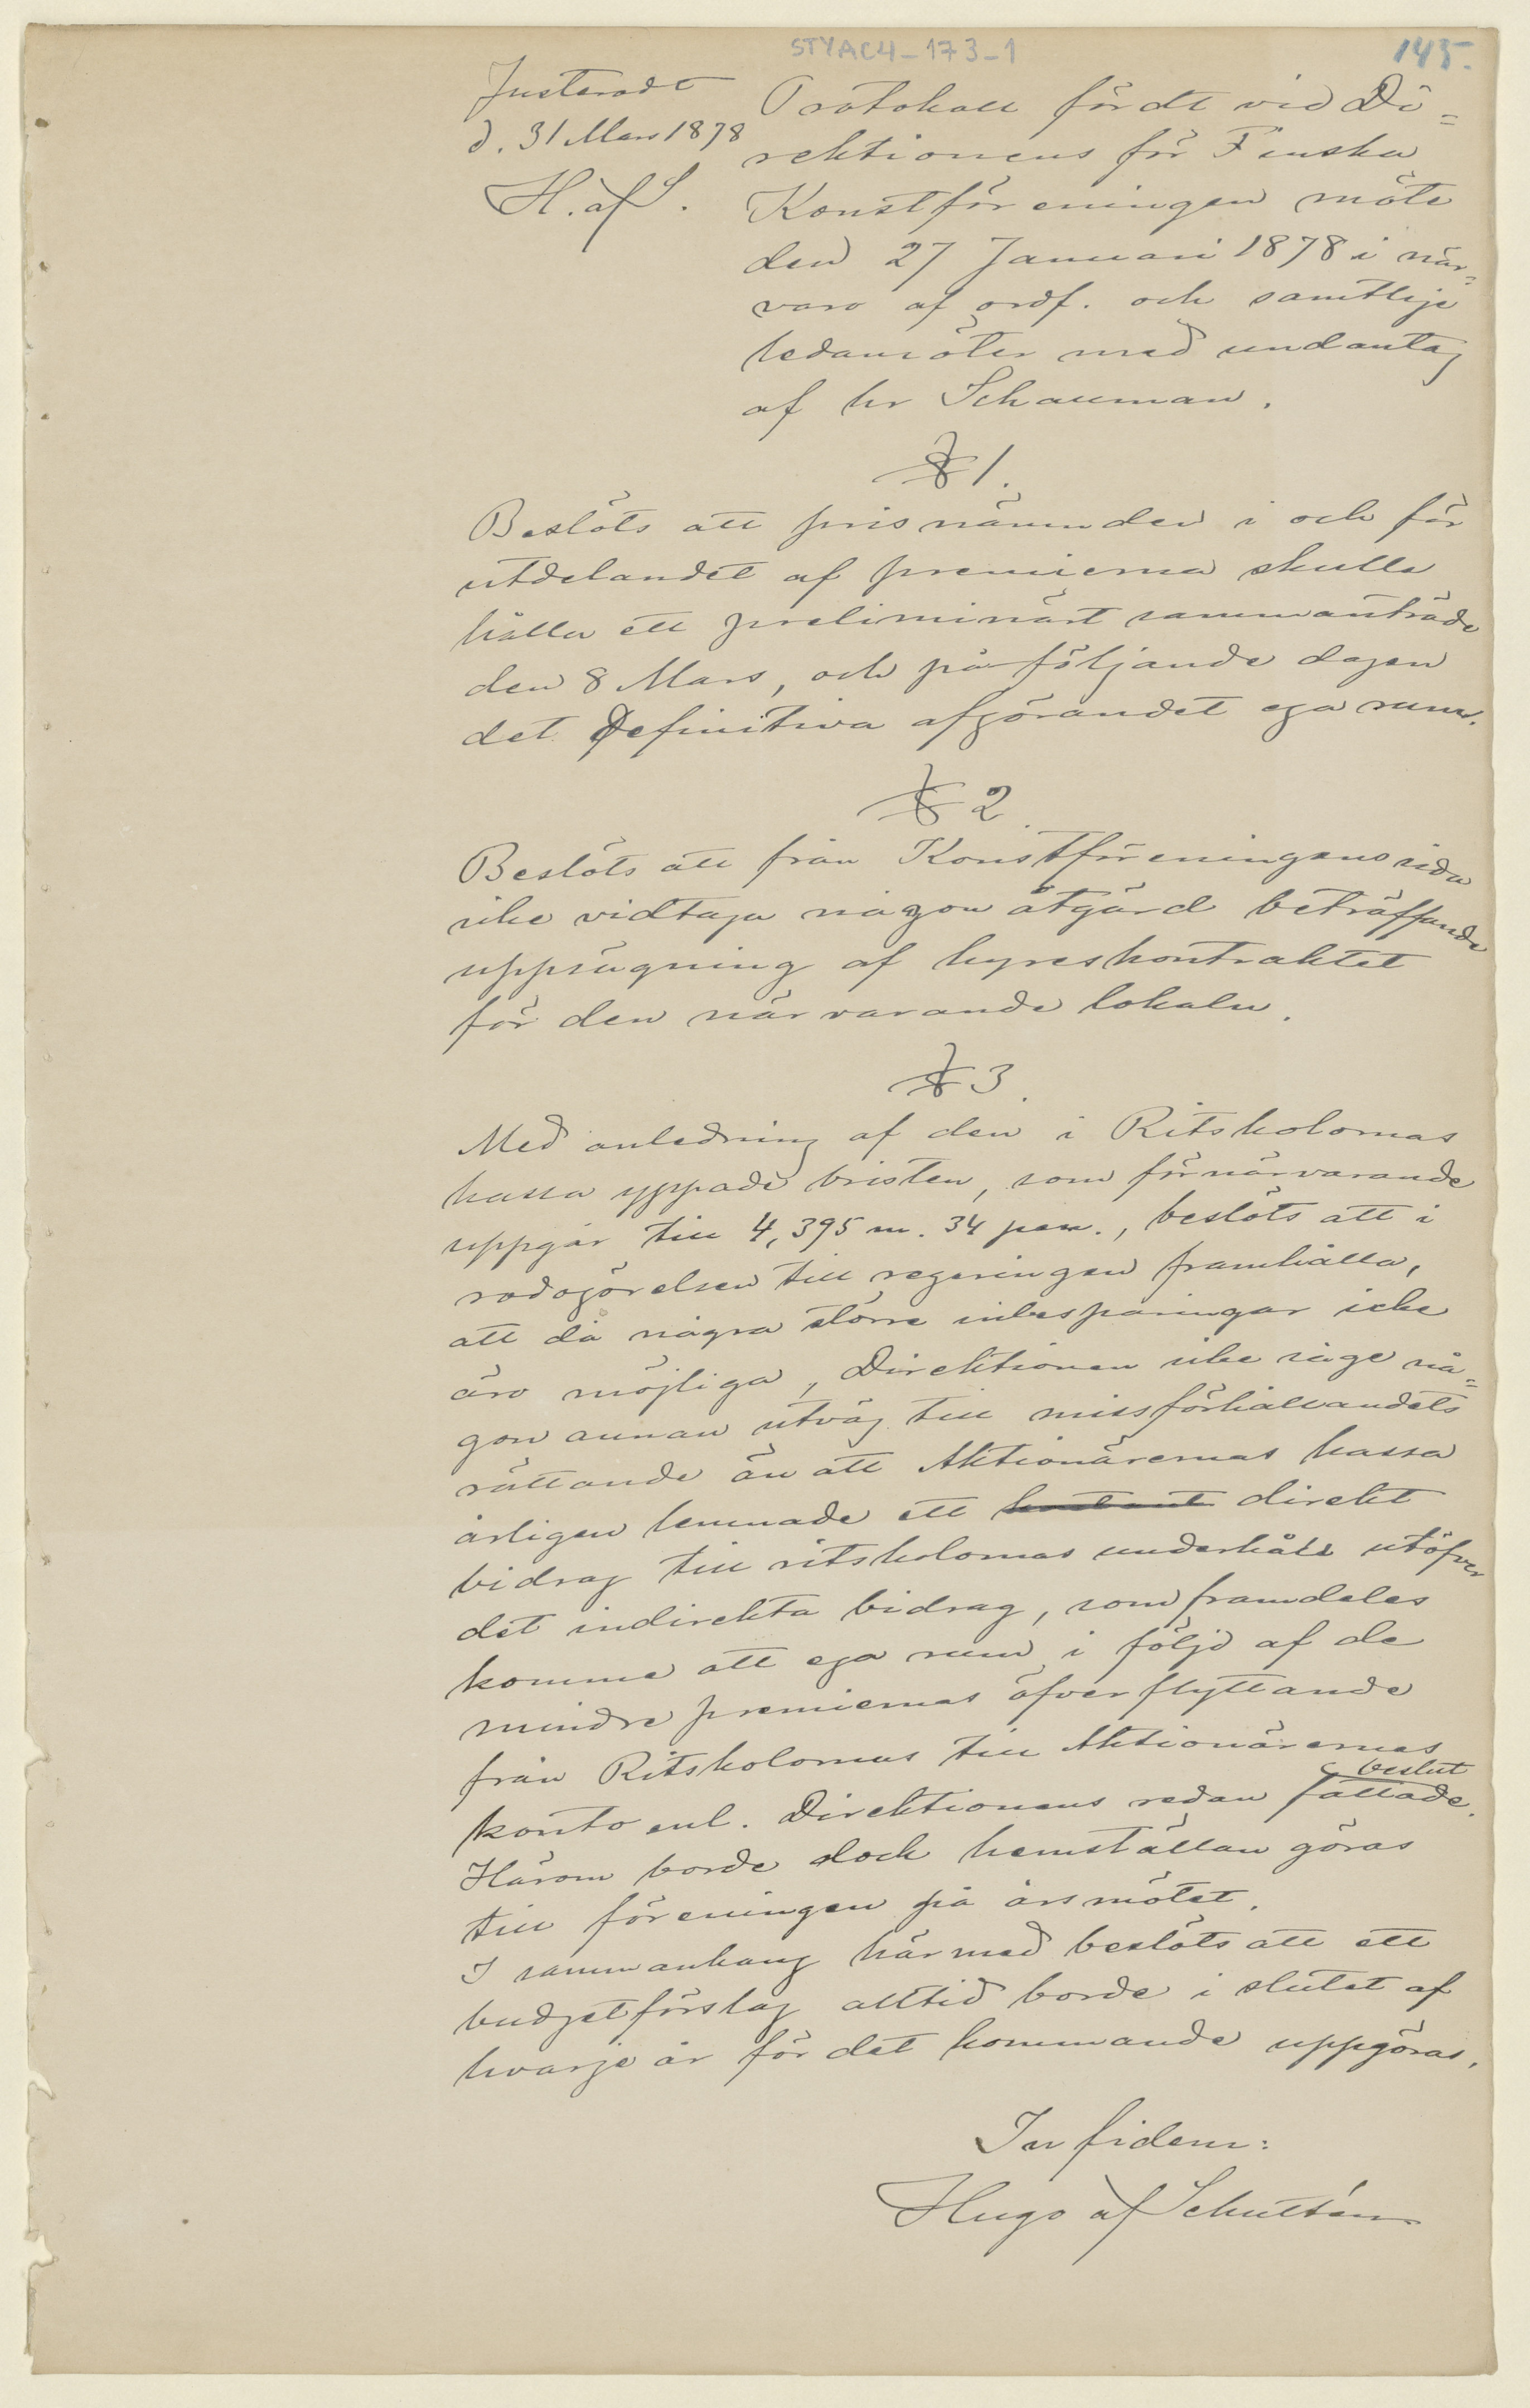 STYAC4-173-1
145.
Justeradt
d. 31 Mars 1878
H. af S.
Protokoll fördt vid Di=
rektionens för Finska
Konstföreningen möte
den 27 Januari 1878 i när=
varo af ordf. och samtlige
ledamöter med undantag
af hr Schauman.
§ 1.
Beslöts att prisnämnden i och för
utdelandet af premierna skulle
hålla ett preliminärt sammanträde
den 8 Mars, och påföljande dagen
det definitiva afgörandet ega rum.
§ 2.
Beslöts att från Konstföreningens sida
icke vidtaga någon åtgärd beträffande
uppsägning af hyreskontraktet
för den närvarande lokalen.
§ 3.
Med anledning af den i Ritskolornas
kassa yppade bristen, som förnärvarande
uppgår till 4,395 m. 34 pen., beslöts att i
redogörelsen till regeringen framhålla,
att då några större inbesparingar icke
äro möjliga, Direktionen icke säge nå=
gon annan utväg till missförhållandets
rättande än att Aktionärernas kassa
årligen lemnade ett direkt
bidrag till ritskolornas underhåll utöfver
det indirekta bidrag, som framdeles
komme att ega rum i följd af de
mindre premiernas öfverflyttande
från Ritskolornas till Aktionärernas
konto enl. Direktionens redan fattade beslut.
Härom borde dock hemställan göras
till föreningen på årsmötet.
I sammanhang härmed beslöts att ett
budgetförslag alltid borde i slutet af
hvarje år för det kommande uppgöras.
In fidem:
Hugo af Schultén